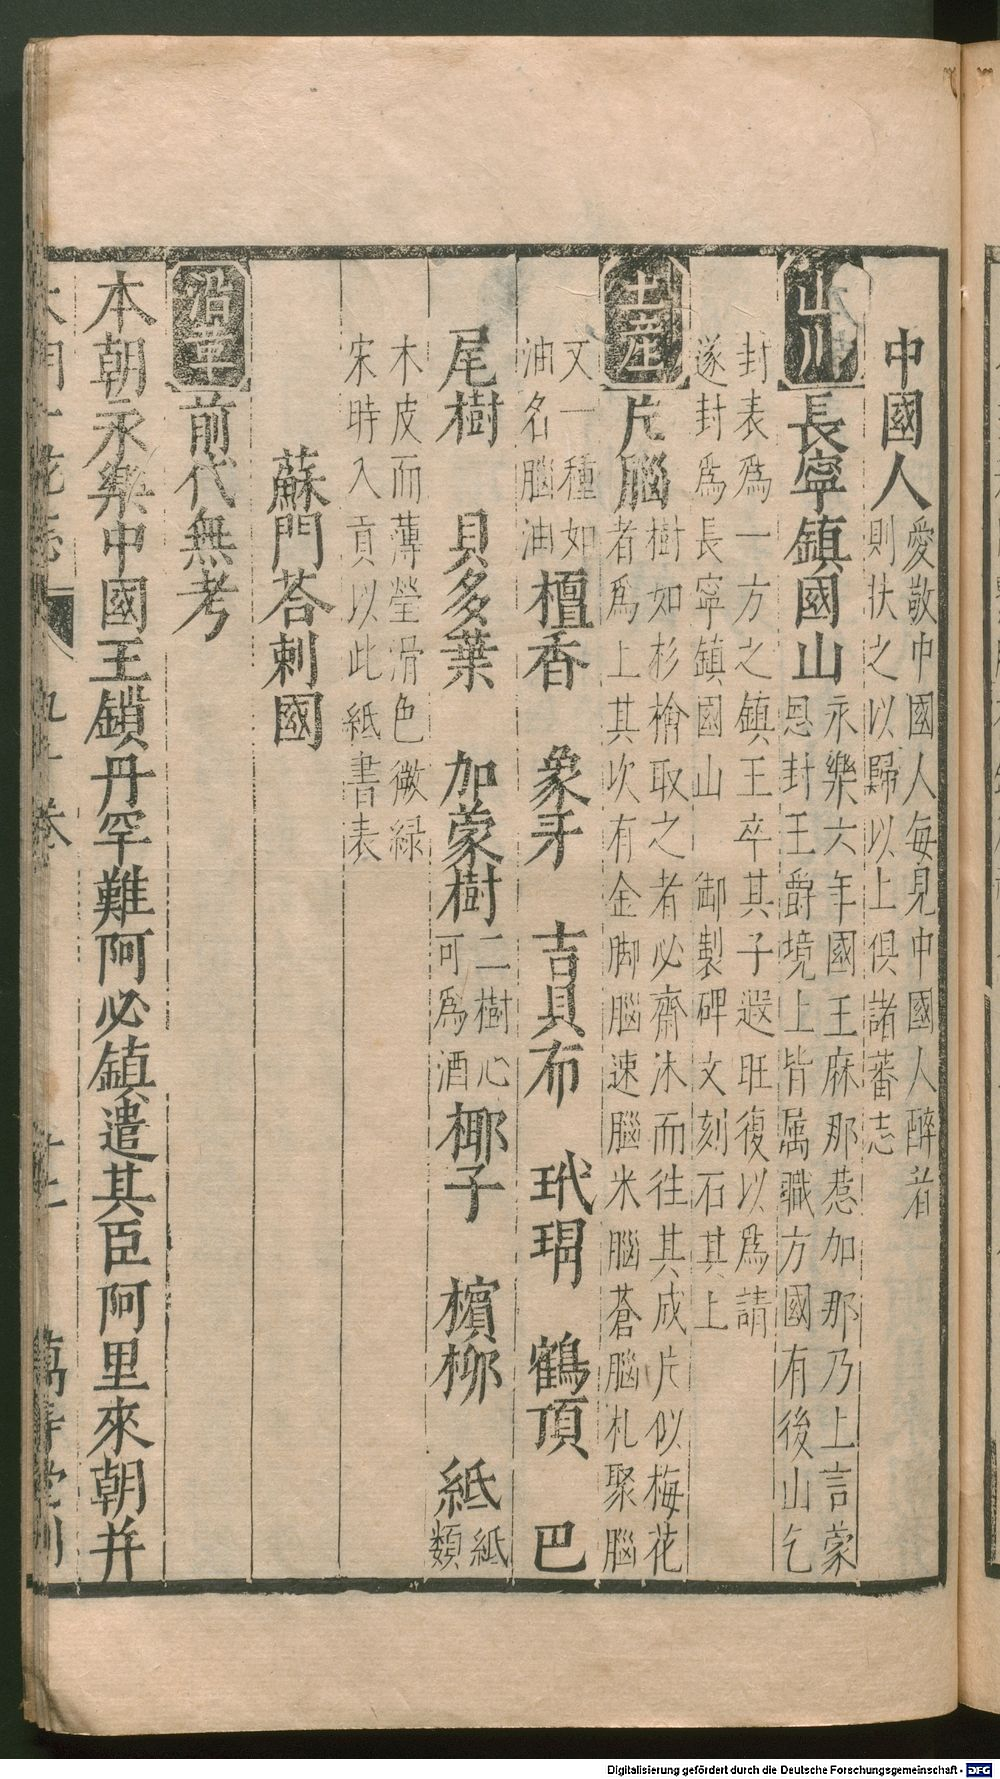 中國人愛敬中國人每見中國人醉者
則扶之以歸以上俱諸蕃志
山川長寧鎮國山永樂六年國王麻那惹加那乃上言蒙
恩封王爵境上皆属職方國有後山乞
封表爲一方之鎮王卒其子遐旺復以爲請
遂封爲長寧鎮國山御製碑文刻石其上
土産片腦樹如杉檜取之者必齋沐而徃其成片似梅花
者爲上其次有金脚腦速腦米腦蒼腦札聚腦
文一種如
油名腦油檀香 象牙 吉貝布 玳瑁 鶴頂 巴
尾樹 貝多葉 加蒙樹二樹心
可爲酒椰子 檳榔 紙紙
類
木皮而薄瑩滑色微緑
宋時入貢以此紙書表
蘇門荅剌國
沿革前代無考
本朝永樂中國王鎖丹罕難阿必鎮遣其臣阿里來朝并
九十卷
萬壽堂刊
Digitalisierung gefördert durch die Deutsche Forschungsgemeinschaft - DFG